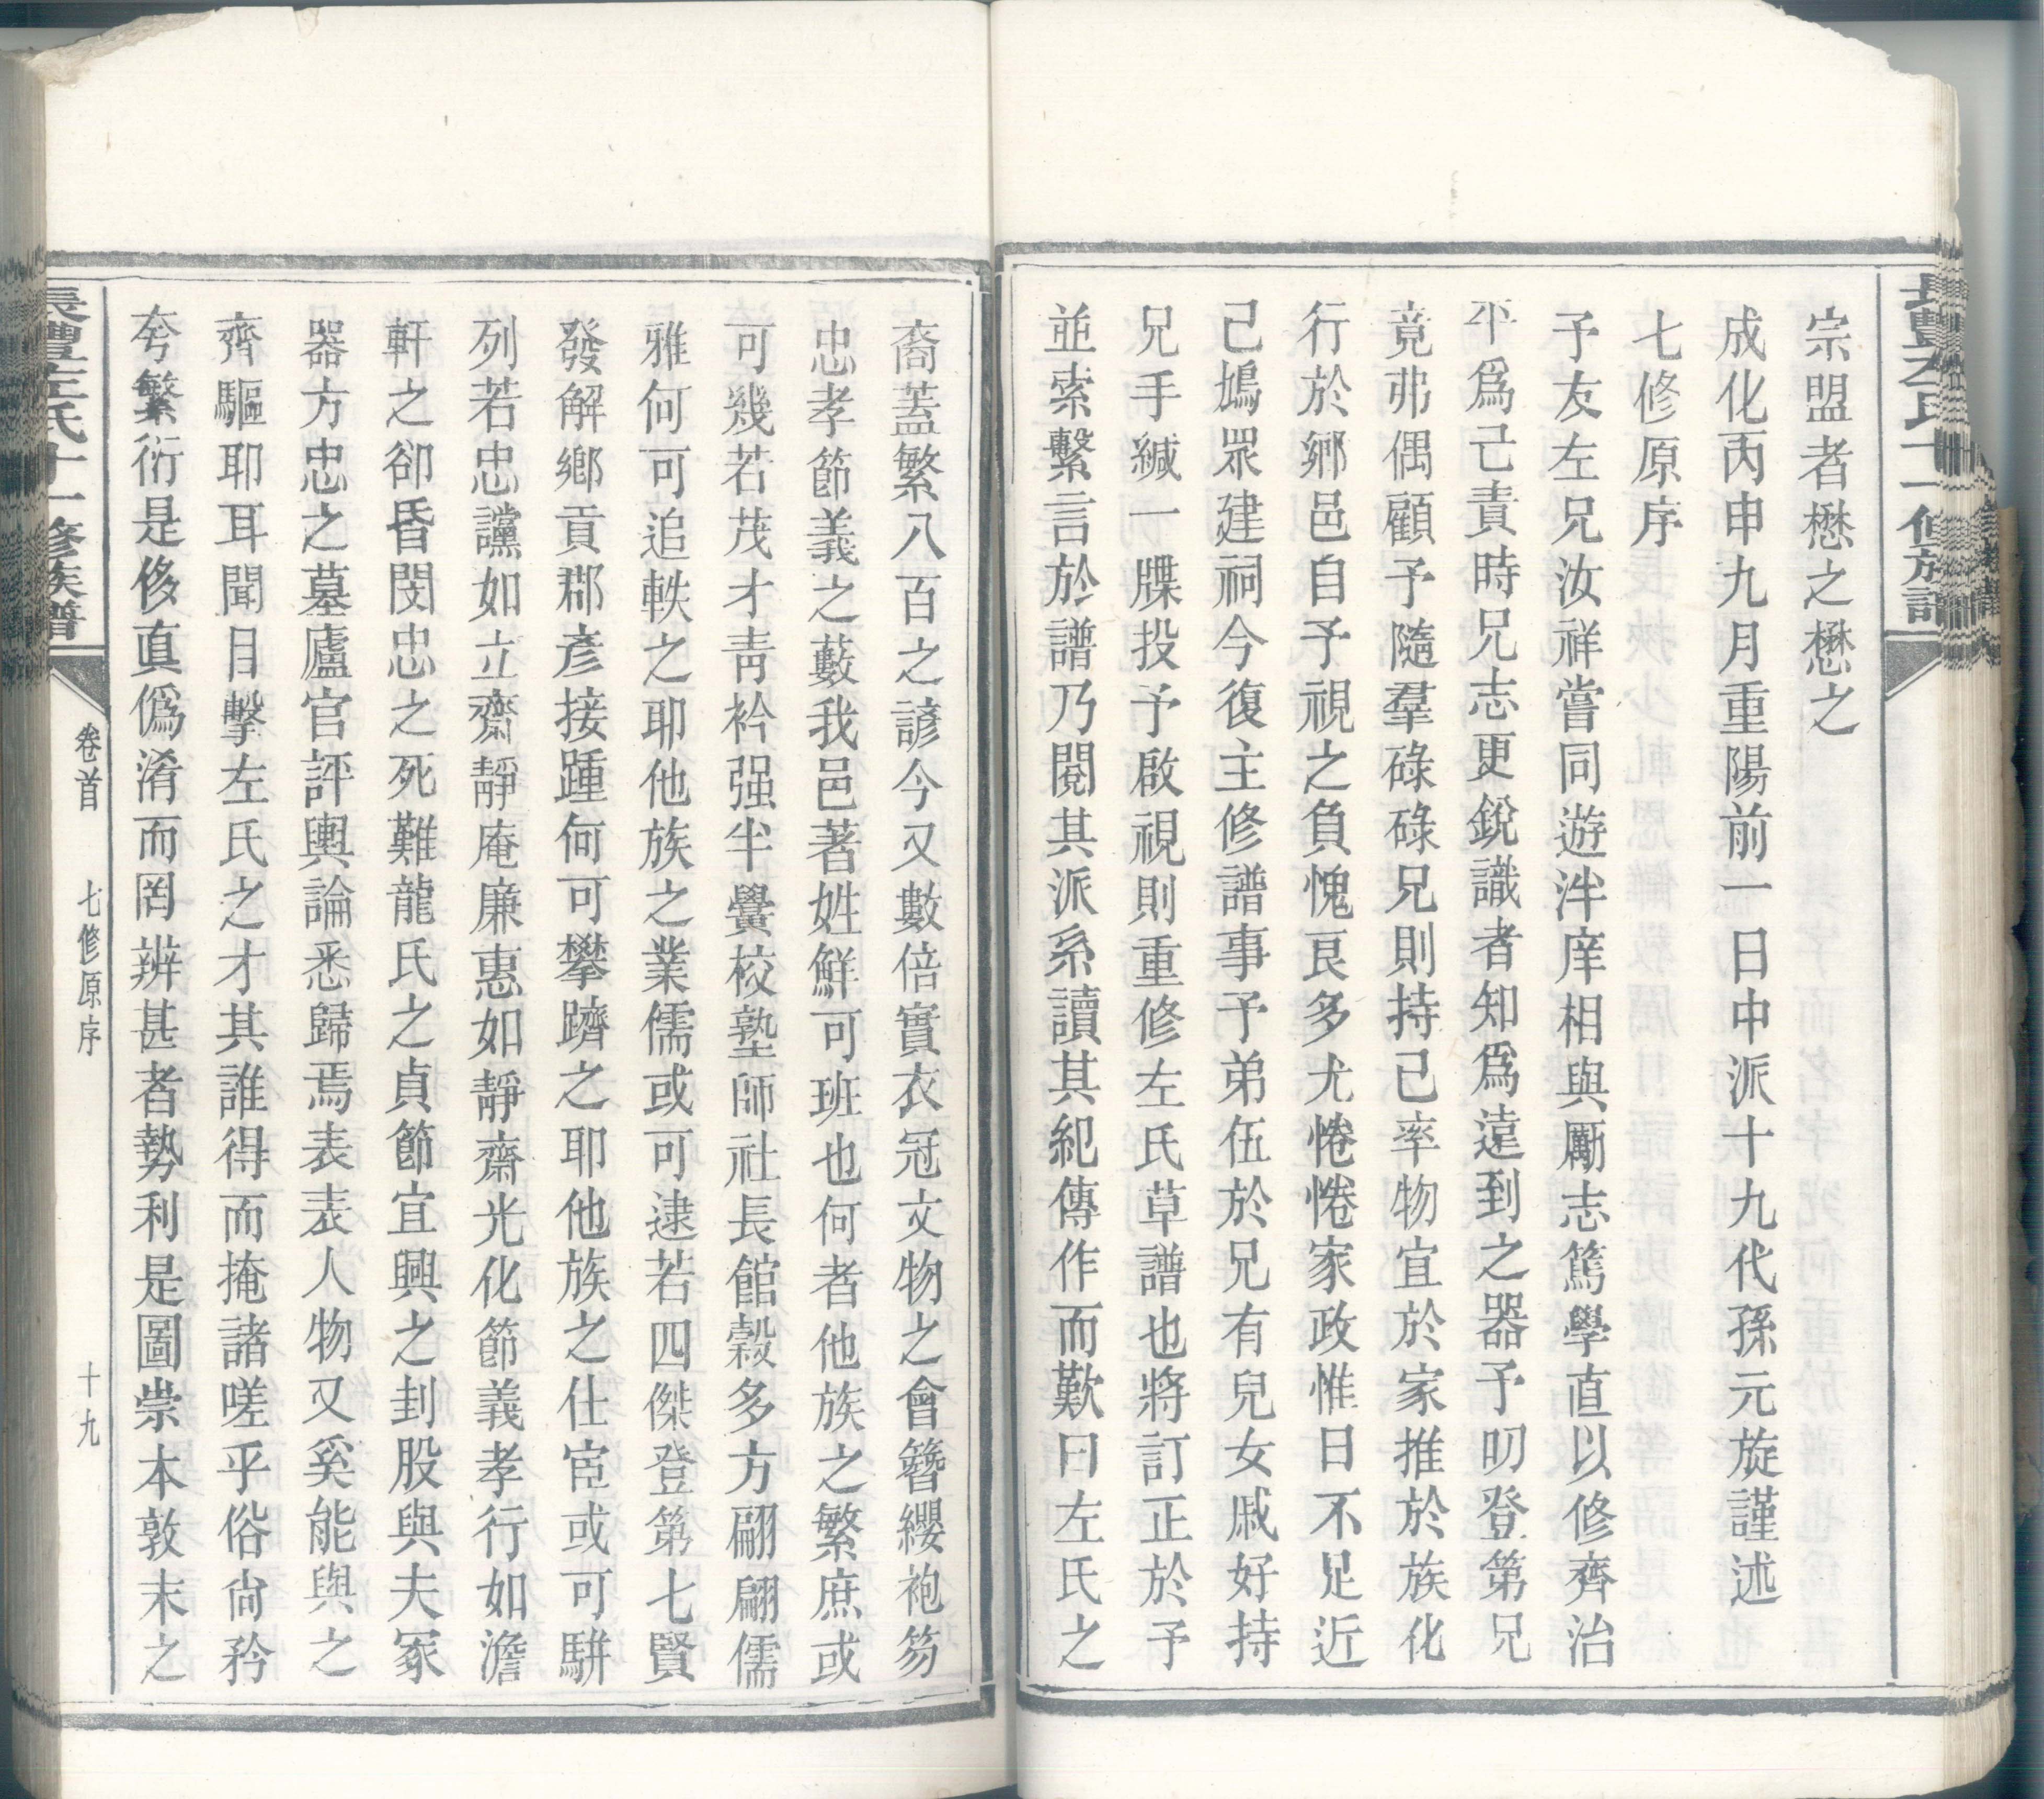 宗盟者懋之懋之
成化丙申九月重陽前一日中派十九代孫元旋謹述
七修原序
予友左兄汝祥嘗同遊泮庠相與勵志篤學直以修齊治
平爲己責時兄志更銳識者知爲遠到之器予叨登第兄
竟弗偶顧予隨羣碌碌兄則持己率物宜於家推於族化
行於鄉邑自予視之負愧良多尤惓惓家政惟日不足近
己鳩眾建祠今復主修譜事予弟伍於兄有兒女戚好持
兄手緘一牒投予啟視則重修左氏草譜也將訂正於予
並索繫言於譜乃閱其派系讀其紀傳作而歎曰左氏之
裔蓋繁八百之諺今又數倍實衣冠文物之會簪纓袍笏
忠孝節義之藪我邑著姓鮮可班也何者他族之繁庶或
可幾若茂才靑衿强半黌校塾師社長館穀多方翩翩儒
雅何可追軼之耶他族之業儒或可逮若四傑登第七賢
發解鄉貢郡彥接踵何可攀躋之耶他族之仕宦或可駢
列若忠讜如立齋靜庵廉惠如靜齋光化節義孝行如澹
軒之卻昏閔忠之死難龍氏之貞節宜興之刲股與夫冢
器方忠之墓廬官評輿論悉歸焉表表人物又奚能與之
齊驅耶耳聞目擊左氏之才其誰得而掩諸嗟乎俗尙矜
夸繁衍是侈眞僞淆而罔辨甚者勢利是圖崇本敦末之
長澧左氏十一修族譜
卷首
七修原序
十九